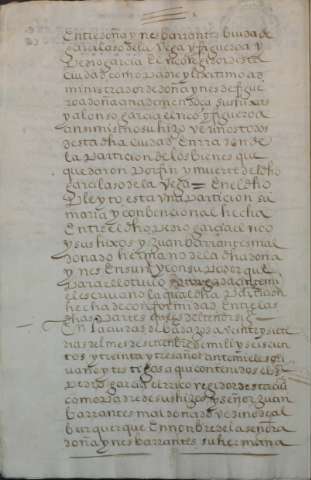 Entre doña ynes barrantes biuda de
garcilaso de la Vega y figueroa y
Pedro garcia el rico regidor desta
ciudad como padre y lexitimo ad
ministrador de doña ynes de figue
roa doña ana de mendoça sus hixas
y alonso garcia el rico y figueroa
ansimismo su hixo veçinos todos
desta dha ciudad En rraçon de
la particion de los bienes que
quedaron por fin y muerte del dho
garcilaso de la Vega = En el dho
Pleyto esta una particion su
maria y conbencional hecha
Entre el dho pedro garcia el rico
y sus hixos y Juan barrantes mal
donado hermano de la dha doña
ynes En su nonbre y con su poder que
para ello tubo otorgada ante mi
el escriuano la qual dha particion
hecha de conformidad Entre las
dhas partes es del tenor sig
En la ciudad de badaxoz a veynte y seis
dias del mes de setiembre de mil y seiscien
tos y treinta y tres años ante mi el escri
uano y testigos aqui contenidos el sr
Pedro garcia el rico regidor desta ciudad
como padre de sus hixos y el señor Juan
barrantes maldonado veçino de al
burquerque En nonbre de la señora
doña ynes barrantes su hermana